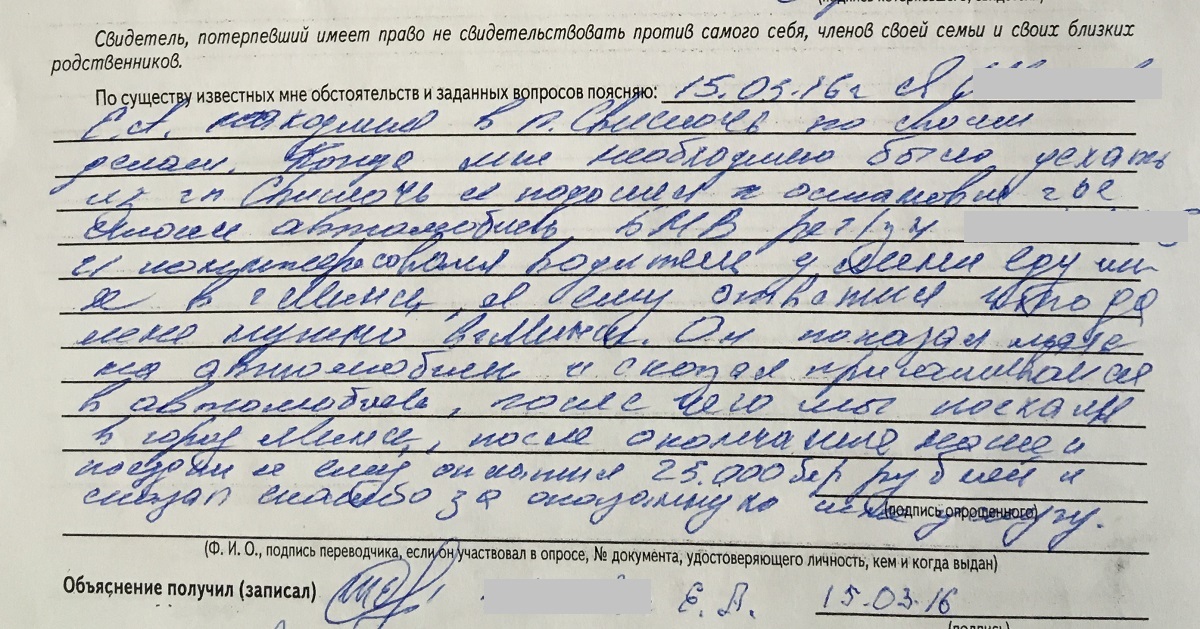 Свидетель, потерпевший имеет право не свидетельствовать против самого себя, членов своей семьи и своих близких
родственников.
По существу известных мне обстоятельств и заданных вопросов поясняю: 15.03.16г я
Е.А. находился в п. Свислочь по своим
делам. Когда мне необходимо было уехать
из гп Свислочь я подошел к остановке где
стоял автомобиль БМВ рег/зн
и поинтересовался водитель у меня еду ли
я в г Минск, я ему ответил что да
мене нужно в г Минск. Он показал мне
на автомобиль и сказал присаживайся
в автомобиль, после чего мы поехали
в город Минск, после окончания нашей
поездки я ему оплатил 25.000 бел рублей и
сказал спасибо за оказанную мне услугу.
(подпись опрошенного)
(Ф. И. О., подпись переводчика, если он участвовал в опросе, № документа, удостоверяющего личность, кем и когда выдан)
Объяснение получил (записал) Е. В. 15.03.16
(подпись)